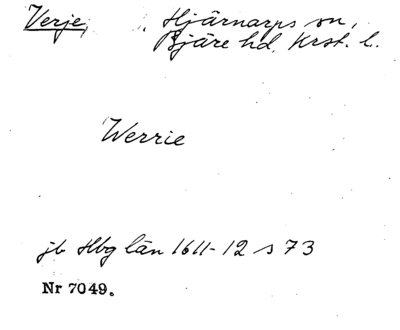 Verje, Hjärnarps sn,
Bjäre hd, Krst. l.
Werrie
jb Hbg län 1611-12 s 73
Nr 7049.